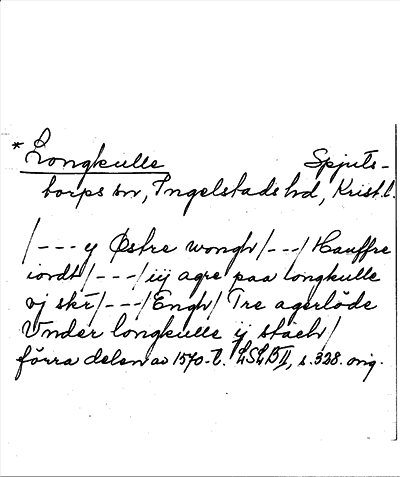 * Longkulle Spjuts-
torps sn, Ingelstads hd, Krist.l.
/--- y Østre wongh/---/ Hauffre
iordt/---/ iij agre paa longkulle
vj skr/---/ Engh/ Tre agerlöde
Vnder longkulle ij stach/
förra delen av 1570-t. LSLB II, s. 328. orig.